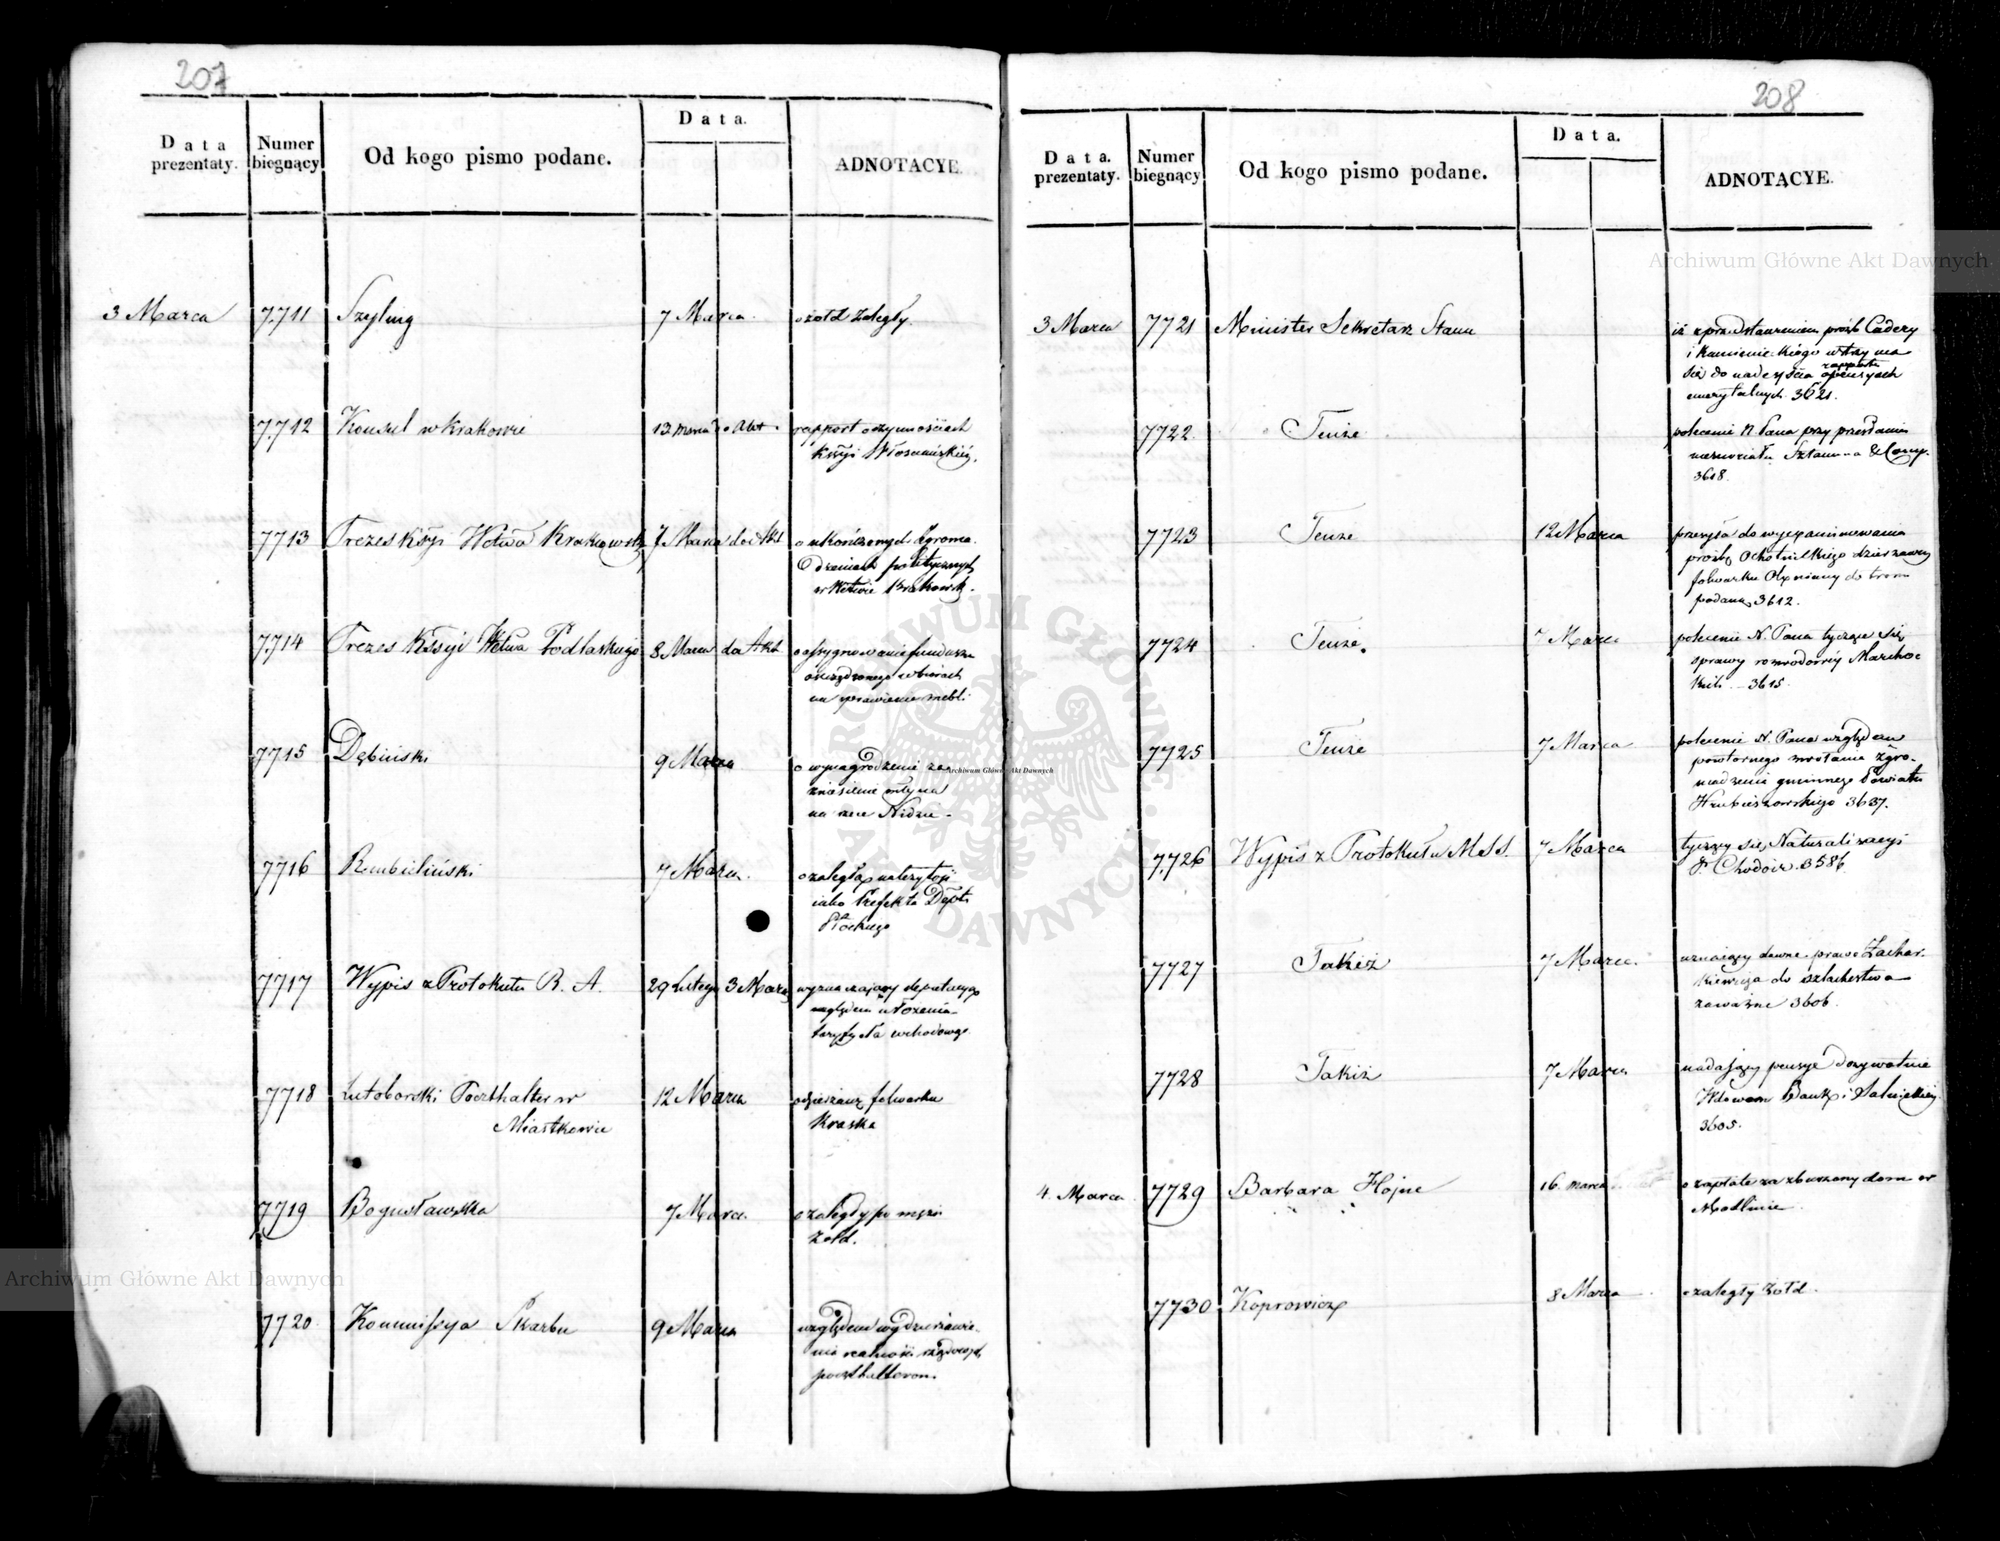 207
Data prezentaty.
Numer biegnący
Od kogo pismo podane.
Data.
ADNOTACYE.
3 Marca 7711 Szejling 7 Marca o żołd zaległy.
7712 Konsul w Krakowie 13 Marca do Akt rapport o czynnościach
Kssyi Włosciańskiéy.
7713 Prezes Kssyi Wdztwa Krakowsk. 7 Marca do Akt o ukończonych Zgroma-
dzeniach politycznych
w Wdztwie Krakowsk.
7714 Prezes Kssyi Wdztwa Podlaskiego 8 Marca do Akt o assygnowanie funduszu
oszczędzonego w biórach
na sprawienie mebli
7715 Dębiński 9 Marca o wynagrodzenie za
zniesienie młyna
na rzece Nidzie.
7716 Rembieliński 7 Marca. o zaległą należytość
iako Prefekta Dęptu
Płockiego
7717 Wypis z Protokułu R. A. 29 Lutego 3 Marca wyznaczający deputacyą
względem ułożenia
taryfy cła wchodowego
7718 Lutoborski Poczthalter w 12 Marca o dzierżawę folwarku
Miastkowie Kraska
7719 Bogusławska 7 Marca o zaległy po mężu
żołd.
7720 Kommissya Skarbu 9 Marca względem wydzierżawie-
nia realności rządowych
poczthalterom.
208
Data prezentaty.
Numer biegnący
Od kogo pismo podane.
Data.
ADNOTACYE.
3 Marca 7721 Minister Sekretarz Stanu iż z przedstawieniem prożb Cadery
i Kamienieckiego wstrzyma
się do nadeyścia rapportu o pensyach
emerytalnych 3621.
7722 Tenże polecenie N. Pana przy przesłaniu
memoriału &Comp.
3618.
7723 Tenże 12 Marca przesyła do wyexaminowania
prożbę Ochotnickiego dzierżawcy
folwarku do tronu
podaną 3612.
7724 Tenże. 7 Marca polecenie N. Pana tyczące się
sprawy rozwodowéy
3615.
7725 Tenże 7 Marca polecenie N. Pana względem
powtórnego zwołania Zgro-
madzenia gminnego Powiatu
Hrubieszowskiego 3637.
7726 Wypis z Protokułu M.S.S. 7 Marca tyczący się Naturalizacyi
P. Chodoir. 3586.
7727 Takiż 7 Marca. uznaiący dawne prawo Zachar-
kiewicza do szlachectwa
za ważne 3606.
7728 Takiż 7 Marca nadaiący pensye dożywotnie
Wdowom i
3605.
4. Marca 7729 Barbara Hojne 16 marca o zapłatę za zburzony dom w
Modlinie
7730 Koprowicz 8 Marca o zaległy żołd.
Archiwum Główne Akt Dawnych
Archiwum Główne Akt Dawnych
Archiwum Główne Akt Dawnych
ARCHIWUM GŁÓWNE AKT DAWNYCH